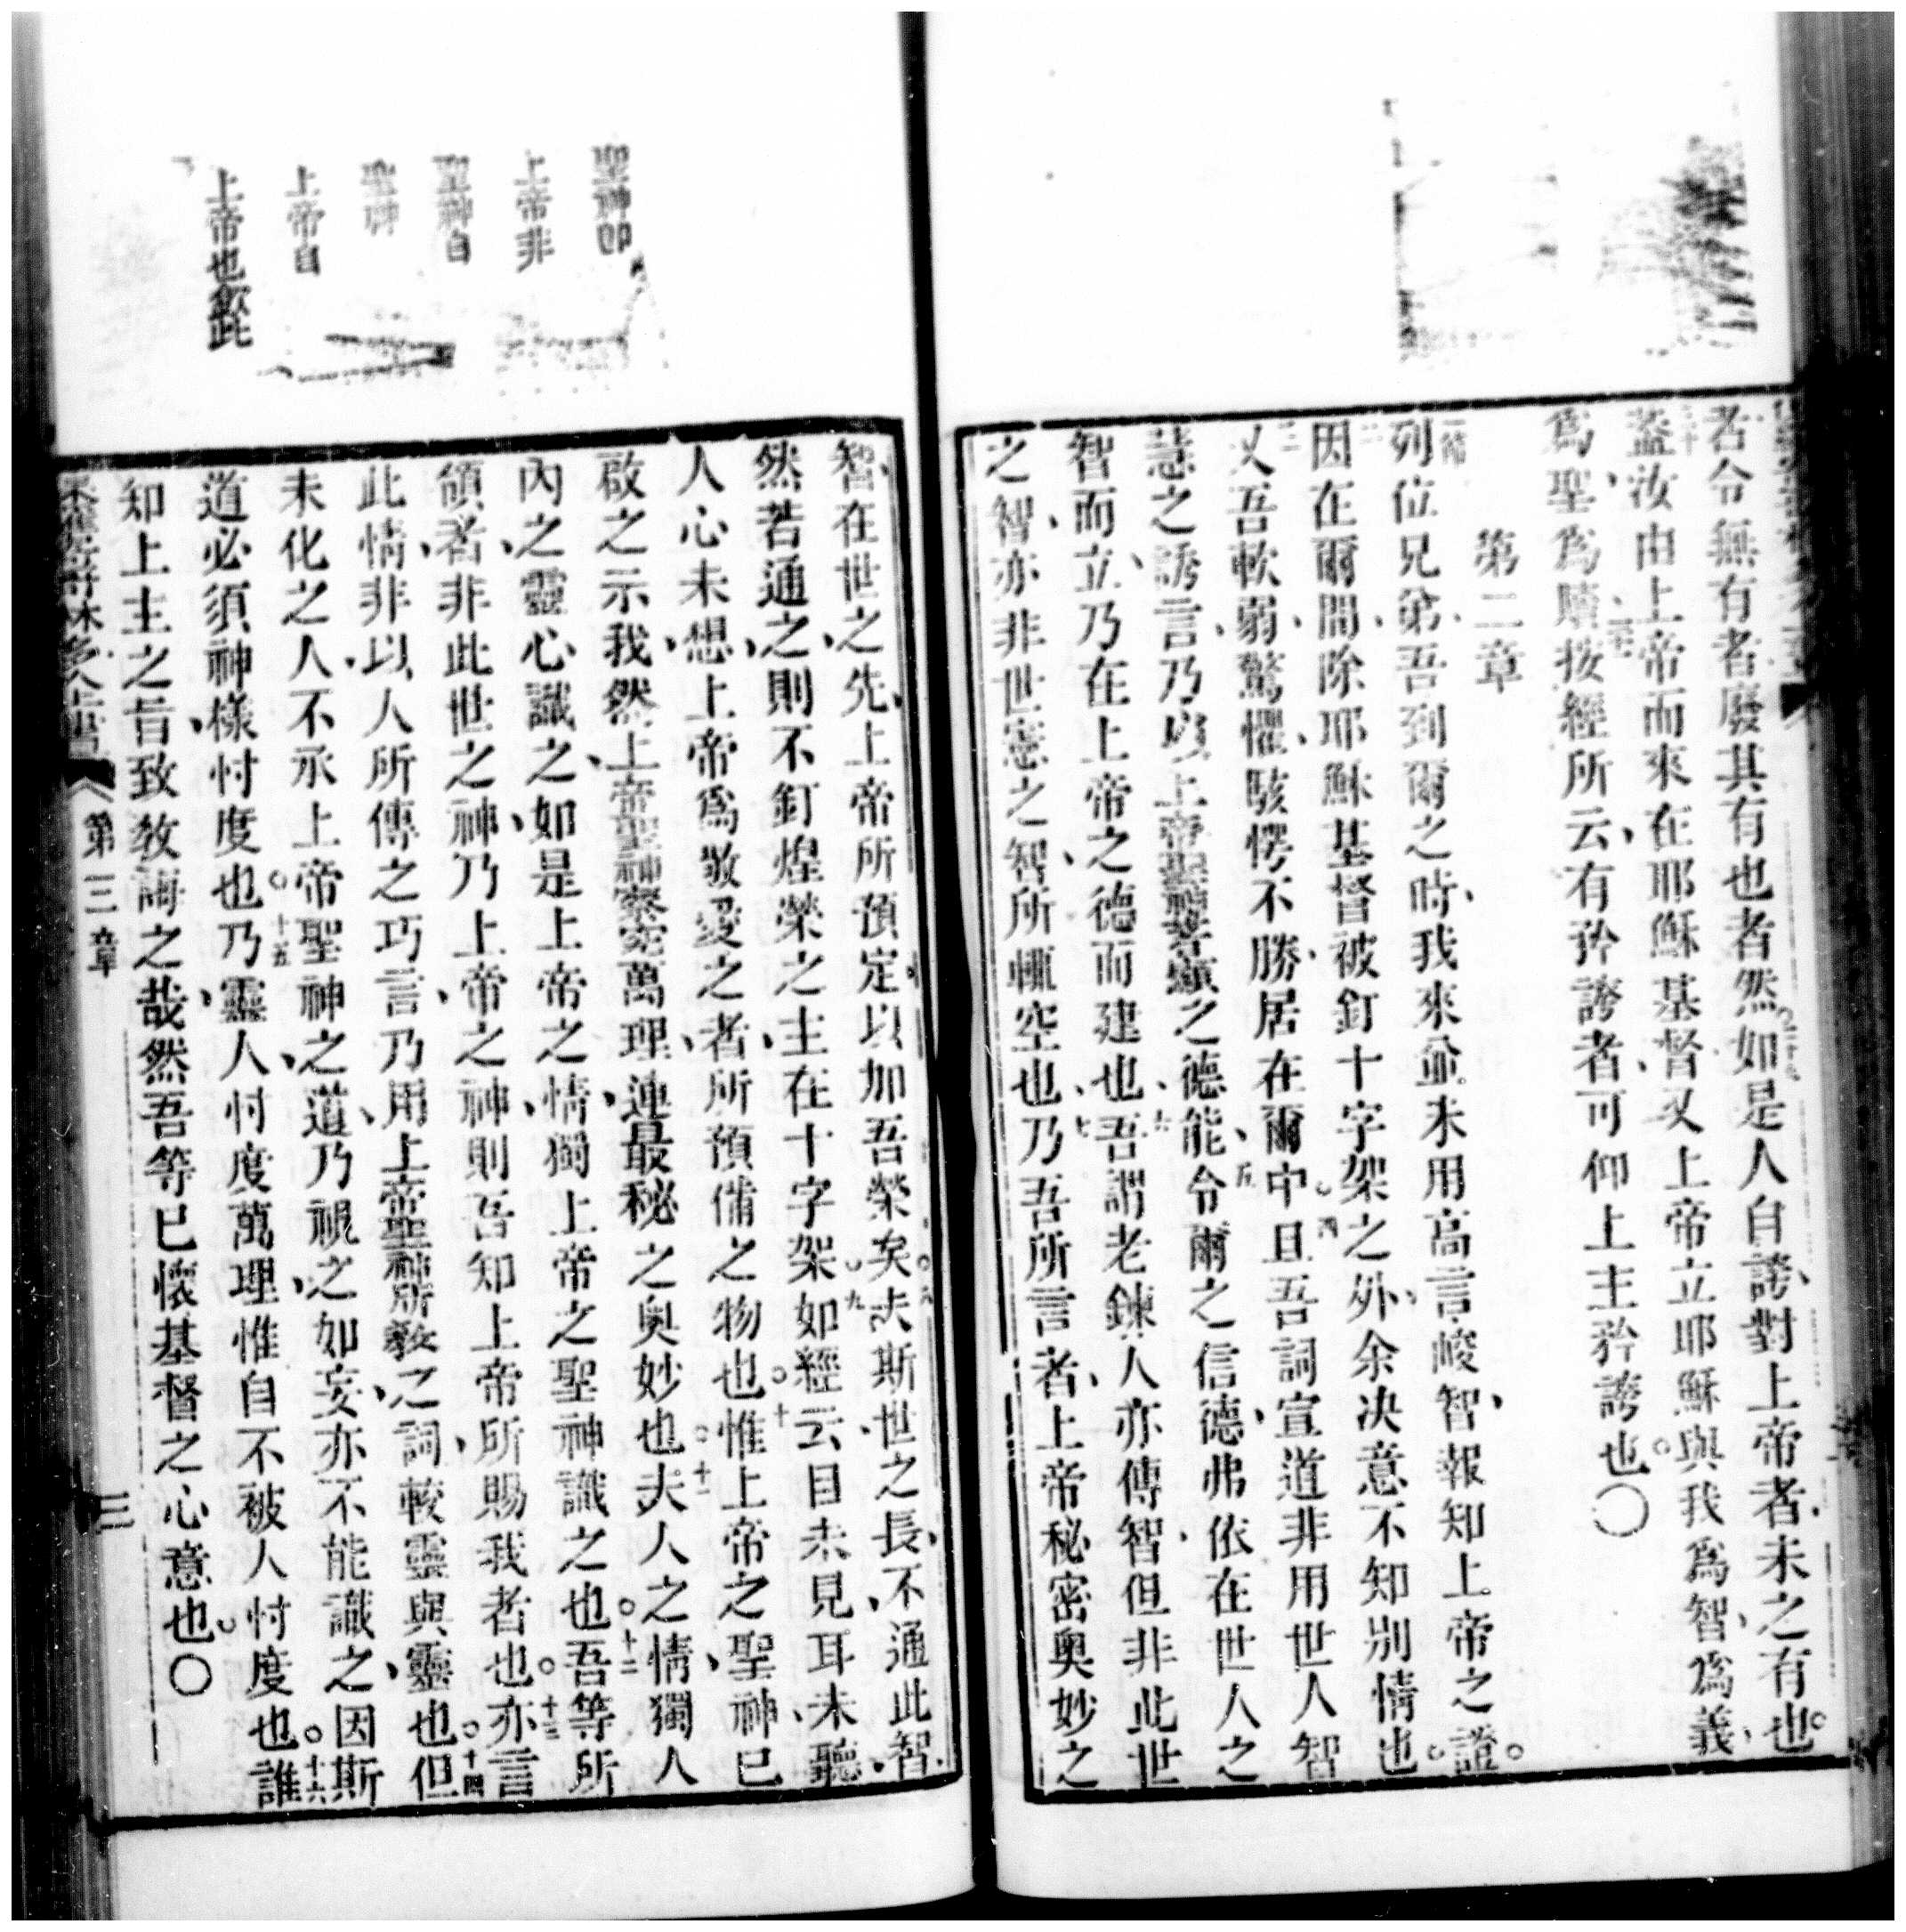 者令無有者廢其有也者然如是人自誇對上帝者未之有也
三十
蓋汝由上帝而來在耶穌基督又上帝立耶穌與我爲智爲義
爲聖爲贖按經所云有矜誇者可仰上主矜誇也〇
第二章
一節
列位兄弟吾到爾之時我來並未用高言峻智報知上帝之證
二
因在爾間除耶穌基督被釘十字架之外余決意不知別情也
三
又吾軟弱驚懼駭愕不勝居在爾中四且吾詞宣道非用世人智
慧之誘言乃以上帝聖神之德能五令爾之信德弗依在世人之
智而立乃在上帝之德而建也六吾謂老鍊人亦傳智但非此世
之智亦非世憲之智所輒空也七乃吾所言者上帝秘密奧妙之
聖神
上帝非
聖神自
聖神
上帝自
上帝也
智在世之先上帝所預定以加吾榮矣八夫斯世之長不通此智
然若通之則不釘煌榮之主在十字架九如經云目未見耳未聽
人心未想上帝爲敬愛之者所預備之物也十惟上帝之聖神已
啟之示我然上帝聖神察究萬理連最秘之奧妙也十一夫人之情獨人
內之靈心識之如是上帝之情獨上帝之聖神識之也十二吾等所
領者非此世之神乃上帝之神則吾知上帝所賜我者也十三亦言
此情非以人所傳之巧言乃用上帝聖神所教之詞較靈與靈也十四但
未化之人不承上帝聖神之道乃視之如妄亦不能識之因斯
道必須神樣忖度也十五乃靈人忖度萬理惟自不被人忖度也十六誰
知上主之旨致教誨之哉然吾等已懷基督之心意也〇
第三章
三